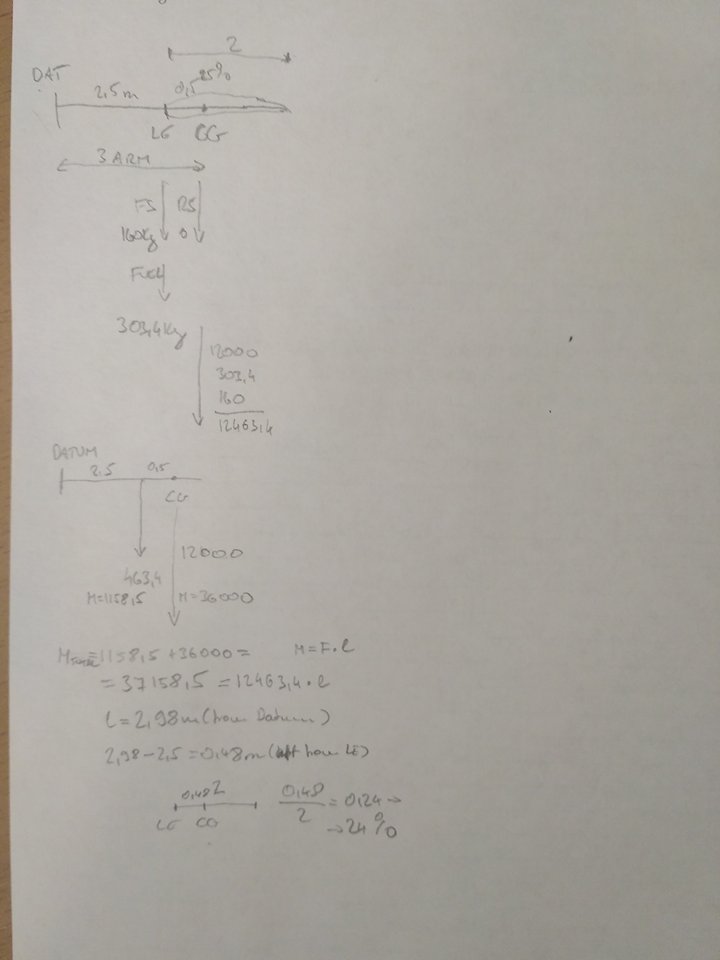 2
DAT
25%
2,5m 0,5
LE CG
3 ARM
FS RS
160Kg 0
Fuel
303,4Kg
12000
303,4
160
12463,4
DATUM
2.5 0,5
CG
12000
463,4
M=1158,5 M=36000
= 1158,5 + 36000 = M=F.l
= 37158,5 = 12463,4 . l
l = 2,98m (from Datum)
2,98 - 2,5 = 0,48m (aft from LE)
0,48 2 0,48
2 = 0,24 →
LE CG → 24%